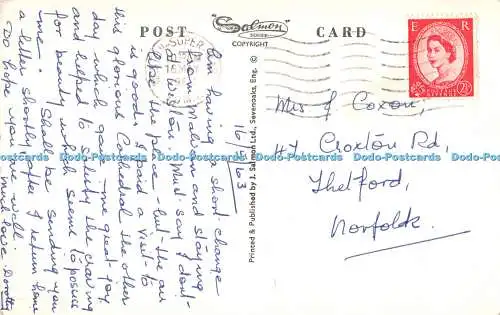 POST
"Salmon"
SERIES
COPYRIGHT
CARD
E R
2½
16/7/63
Am having a short change
from Malvern and staying
at Weston. Must say I don't
like the place - but the air
is good. I paid a visit to
this glorious Cathedral the other
day which gave me great joy
and helped to satisfy the craving
for beauty which seems to possess
me. Shall be sending you
a letter shortly after I return home
Do hope you are well.
much love. Dorothy
Mrs J. Coxon,
47 Croxton Rd,
Thetford,
Norfolk.
Printed & Published by J. Salmon Ltd., Sevenoaks, Eng. ©
Dodo-Postcards Dodo-Postcards Dodo-Postcards Dodo-Postcards Dodo-Postcards Dodo-Postcards